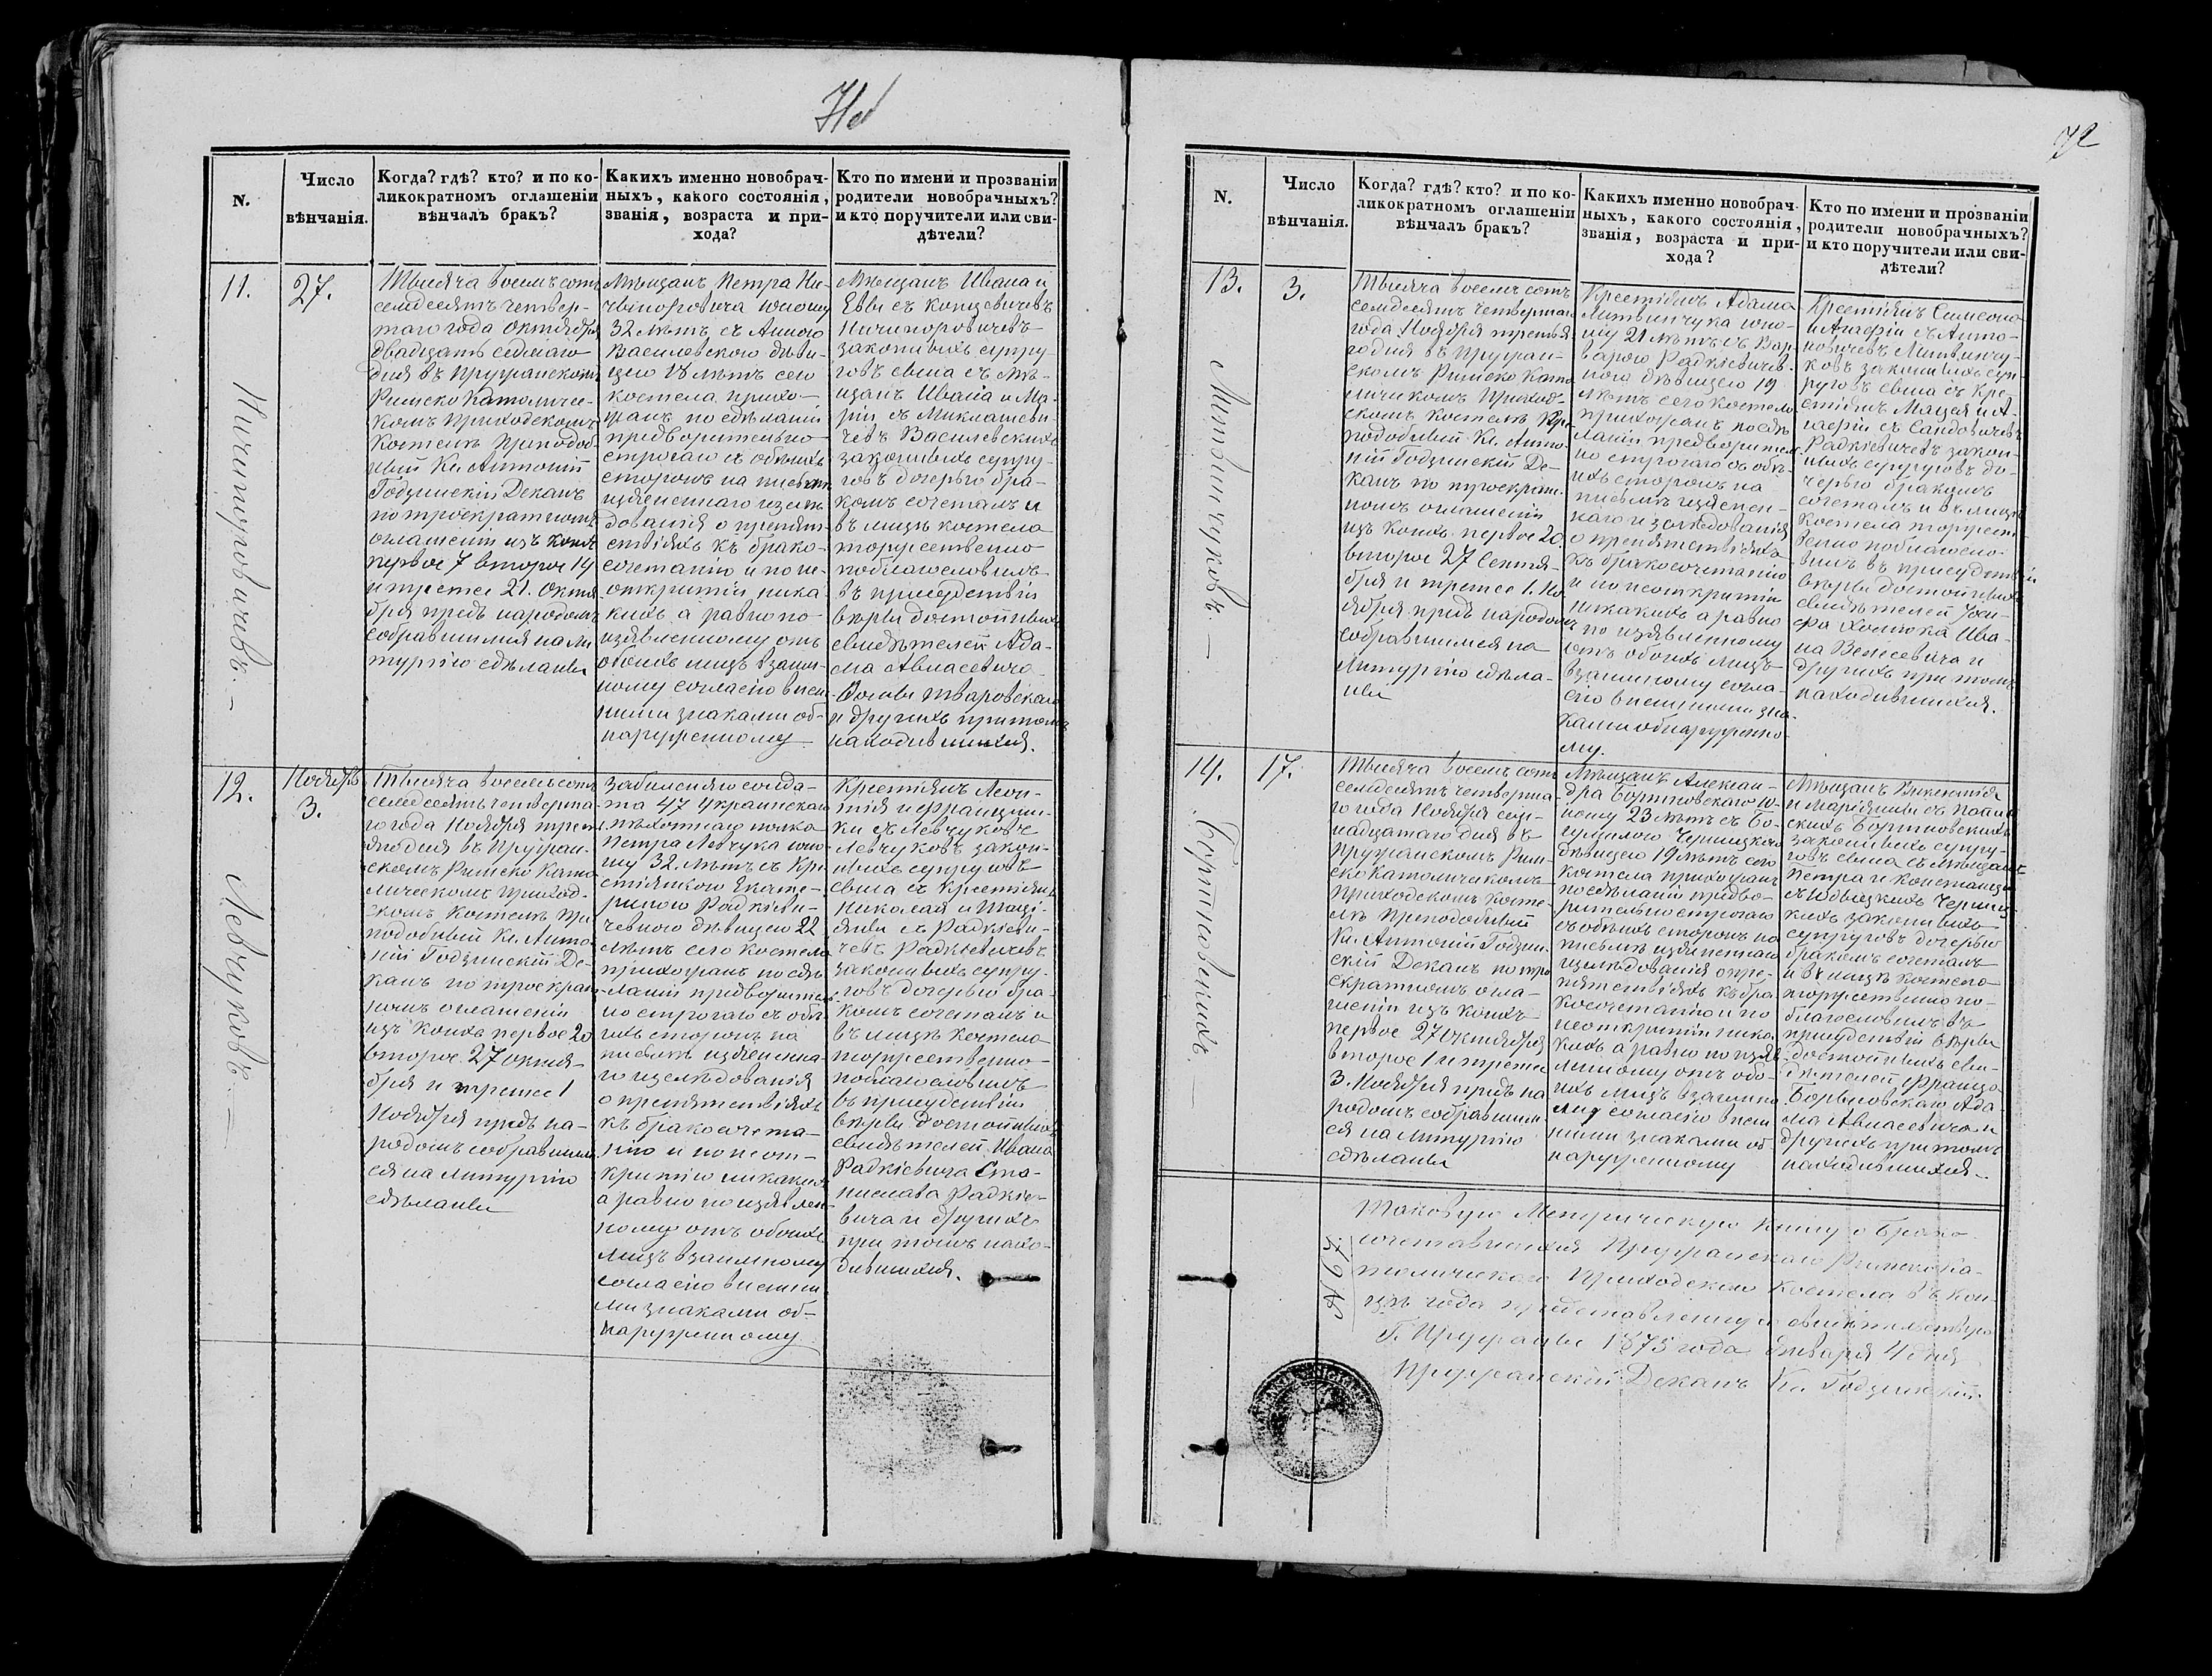 72
N.
Число
вѣнчанія.
Когда? гдѣ? кто? и по ко-
ликократномъ оглашеніи
вѣнчалъ бракъ?
Какихъ именно новобрач-
ныхъ, какого состоянія,
званія, возраста и при-
хода?
Кто по имени и прозваніи
родители новобрачныхъ?
и кто поручители или сви-
дѣтели?
11.
Ничипоровичевъ. –
27.
Тысяча восемъ сотъ
семдесятъ четвер-
таго года Октября
двадцать седмаго
дня въ Пружанскомъ
Римско Католичес-
комъ Приходскомъ
Костелѣ Преподоб-
ный Кс. Антоній
Годзинскій Деканъ
по троекратномъ
оглашеніи изъ коихъ
первое 7 второе 14
и третее 21. Октя
бря предъ народомъ
собравшимся на Ли
тургію сдѣланы
Мѣщанъ Петра Ни-
чыпоровича юношу
32 лѣтъ съ Анною
Василевскою дѣви-
цею 18 лѣтъ сего
костела прихо-
жанъ по сдѣланіи
предворительно
строгаго съ обѣихъ
сторонъ на письмѣ
изясненнаго изслѣ
дованія о препят-
ствіяхъ къ брако-
сочетанію и по не-
открытіи ника
кихъ а равно по
изъявленному отъ
обоихъ лицъ взаим-
ному согласію внеш
ними знаками об-
наруженному
Мѣщанъ Ивана и
Евы съ Концевичевъ
Ничипоровичевъ
законныхъ супру-
говъ сына съ Мѣ-
щанъ Ивана и Ма-
ріи съ Миклашеви-
чевъ Василевскихъ
законныхъ супру-
говъ дочерью бра-
комъ сочеталъ и
въ лицѣ костела
торжественно
поблагословилъ
въ присудствіи
вѣры достойныхъ
свидѣтелей Ада-
ма Авласевича
Тваровскаго
и другихъ при томъ
находившихся.
12.
Левчуковъ. –
Ноября
3.
Тысяча восемъ сотъ
семдесятъ четверта
го года Ноября треть
яго дня въ Пружан-
скомъ Римско Като
лическомъ Приход-
скомъ Костелѣ Пре
подобный Кс. Анто-
ній Годзинскій Де-
канъ по троекрат
номъ оглашеніи
изъ коихъ первое 20
второе 27 октя-
бря и третее 1
Ноября предъ на-
родомъ собравшим
ся на Литургію
сдѣланы
солда-
та 47 Украинскаго
пѣхотнаго полка
Петра Левчука юно
шу 32 лѣтъ съ Кре
стіянкою Екате-
риною Радкеви-
чевною дѣвицею 22
лѣтъ сего костела
прихожанъ по сдѣ
ланіи предворитель
но строгаго съ обѣ
ихъ сторонъ на
письмѣ изясненна-
го изслѣдованія
о препятствіяхъ
къ бракосочета-
нію и по неот-
крытію никакихъ
а равно по изявлен
ному отъ обоихъ
лицъ взаимному
согласію внешни
ми знаками об-
наруженному
Крестіянъ Леон-
тія и Францишки
съ Левчуковъ
Левчуковъ закон-
ныхъ супруговъ
сына съ Крестіянъ
Николая и
съ Радкеви-
чевъ Радкевичевъ
законныхъ супру-
говъ дочерью бра-
комъ сочеталъ и
въ лицѣ костела
торжественно
поблагословилъ
въ присудствіи
вѣры достойныхъ
свидѣтелей Ивана
Радкіевича Ста-
нислава Радкіе-
вича и другихъ
при томъ нахо-
дившихся.
N.
Число
вѣнчанія.
Когда? гдѣ? кто? и по ко-
ликократномъ оглашеніи
вѣнчалъ бракъ?
Какихъ именно новобрач-
ныхъ, какого состоянія,
званія, возраста и при-
хода?
Кто по имени и прозваніи
родители новобрачныхъ?
и кто поручители или сви-
дѣтели?
13.
Литвинчуковъ. –
3.
Тысяча восемъ сотъ
семдесятъ четвертаго
года Ноября третья
го дня въ Пружан-
скомъ Римско Като
лическомъ Приход-
скомъ Костелѣ Пре
подобный Кс. Анто-
ній Годзинскій Де-
канъ по троекрат-
номъ оглашеніи
изъ коихъ первое 20.
второе 27 Сентя-
бря и третее 1. Но
ября предъ народомъ
собравшимся на
Литургію сдѣла-
ны
Крестіянъ Адама
Литвинчука юно-
шу 21 лѣтъ съ Вар-
варою Радкевичев-
ною дѣвицею 19
лѣтъ сего костела
прихожанъ по сдѣ
ланіи предворитель
но строгаго съ обѣ-
ихъ сторонъ на
письмѣ изяснен-
наго изслѣдованія
о препятствіяхъ
къ бракосочетанію
и по неоткрытіи
никакихъ а равно
по изявленному
отъ обоихъ лицъ
взаимному согла-
сію внешними зна-
ками обнаруженно-
му.
Крестіянъ Симеона
и Агафіи съ Анто-
новичевъ Литвинчу-
ковъ законныхъ суп-
руговъ сына съ Кре-
стіянъ Мацея и А-
гафіи съ Сандовичевъ
Радкевичевъ закон-
ныхъ супруговъ до-
черью бракомъ
сочеталъ и въ лицѣ
Костела торжест-
венно поблагосло-
вилъ въ присудствіи
вѣры достойныхъ
свидѣтелей Іоси-
фа Хомюка Ива-
на Велесевича и
другихъ при томъ
находившихся.
14.
Бортновскихъ –
17.
Тысяча восемъ сотъ
семдесятъ четверта-
го года Ноября сем-
надцатаго дня въ
Пружанскомъ Рим-
ско Католическомъ
Приходскомъ Косте-
лѣ Преподобный
Кс. Антоній Годзин-
скій Деканъ по тро
екратномъ огла-
шеніи изъ коихъ
первое 27 Октября
второе 1 и третее
3. Ноября предъ на
родомъ собравшим-
ся на Литургію
сдѣланы
Мѣщанъ Алексан-
дра Бортновскаго ю-
ношу 23 лѣтъ съ
Черницкою
дѣвицею 19 лѣтъ сего
костела прихожанъ
по сдѣланіи предво-
рительно строгаго
съ обѣихъ сторонъ на
письмѣ изясненнаго
изслѣдованія о пре-
пятствіяхъ къ бра
косочетанію и по
неоткрытіи ника-
кихъ а равно по изяв
ленному отъ обо-
ихъ лицъ взаимно
му согласію внеш
ними знаками об
наруженному
Мѣщанъ Викентія
и Маріянны съ
Бортновскихъ
законныхъ супру-
говъ сына съ Мѣщанъ
Петра и Констанціи
Черниц
кихъ законныхъ
супруговъ дочерью
бракомъ сочеталъ
и въ лицѣ костела
торжественно по-
благословилъ въ
присудствіи вѣры
достойныхъ сви-
дѣтелей Франца
Борвиловскаго Ада-
ма Авласевича и
другихъ при томъ
находившихся.
Таковую Метрическую книгу о Брако-
сочетавшихся Пружанскаго Римско Ка-
толическаго Приходскаго Костела въ кон-
цѣ года представленную свидѣтельствую
Г. Пружаны 1875 года Января 4 дня
Пружанскій Деканъ Кс. Годзинскій
№ 61